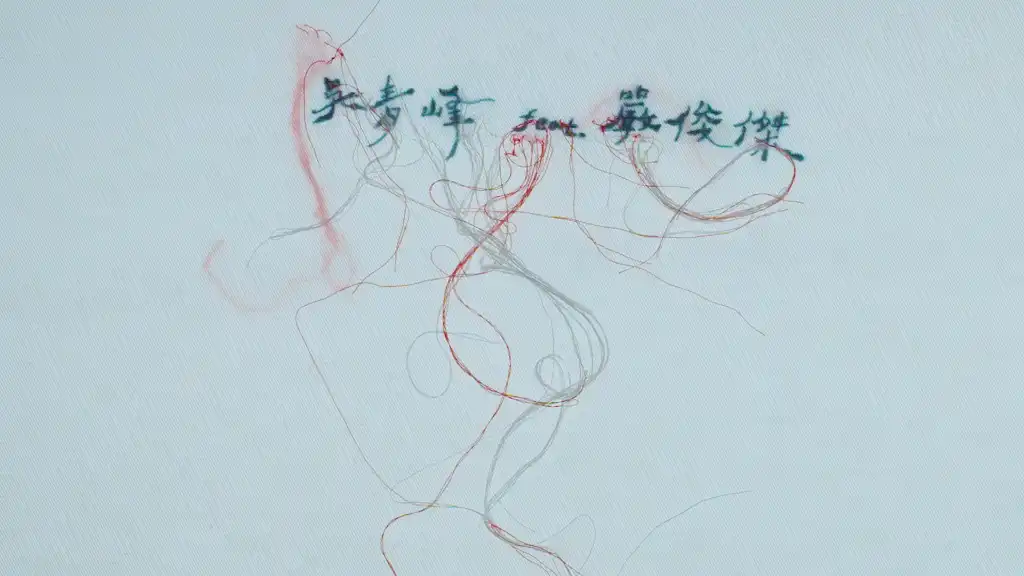 吳青峰 feat. 嚴俊傑